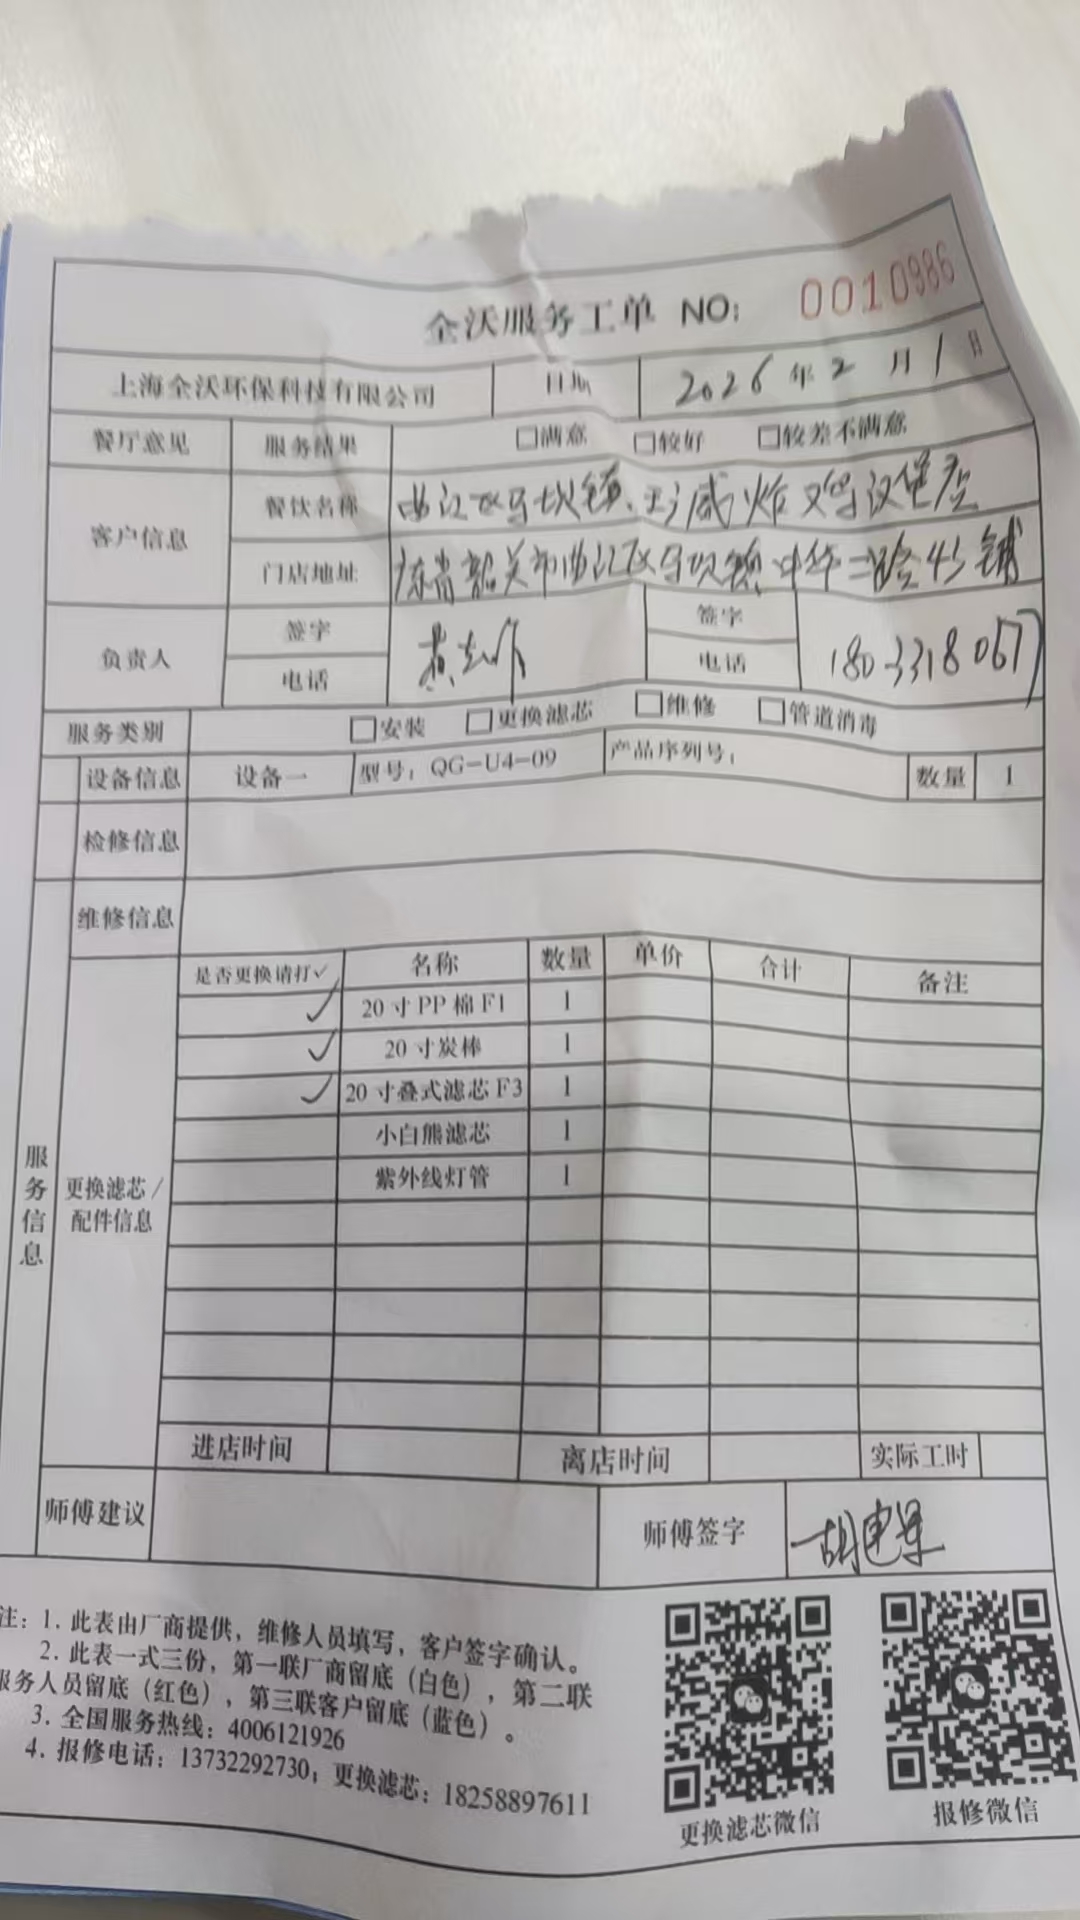 全沃服务工单 NO: 0010986
上海全沃环保科技有限公司 日期 2026年2月1日
餐厅意见 服务结果 □满意 □较好 □较差不满意
客户信息 餐饮名称 曲江区马坝镇 威炸鸡汉堡店
门店地址 广东省韶关市曲江区马坝镇中华二路45铺
负责人 签字 签字
电话 电话 18033180677
服务类别 □安装 □更换滤芯 □维修 □管道消毒
设备信息 设备一 型号：QG-U4-09 产品序列号： 数量 1
检修信息
维修信息
是否更换请打✓ 名称 数量 单价 合计 备注
✓ 20寸PP棉F1 1
✓ 20寸炭棒 1
✓ 20寸叠式滤芯F3 1
小白熊滤芯 1
紫外线灯管 1
服务信息
更换滤芯/
配件信息
进店时间 离店时间 实际工时
师傅建议 师傅签字 胡建
注：1. 此表由厂商提供，维修人员填写，客户签字确认。
2. 此表一式三份，第一联厂商留底（白色），第二联
服务人员留底（红色），第三联客户留底（蓝色）。
3. 全国服务热线：4006121926
4. 报修电话：13732292730；更换滤芯：18258897611
更换滤芯微信 报修微信